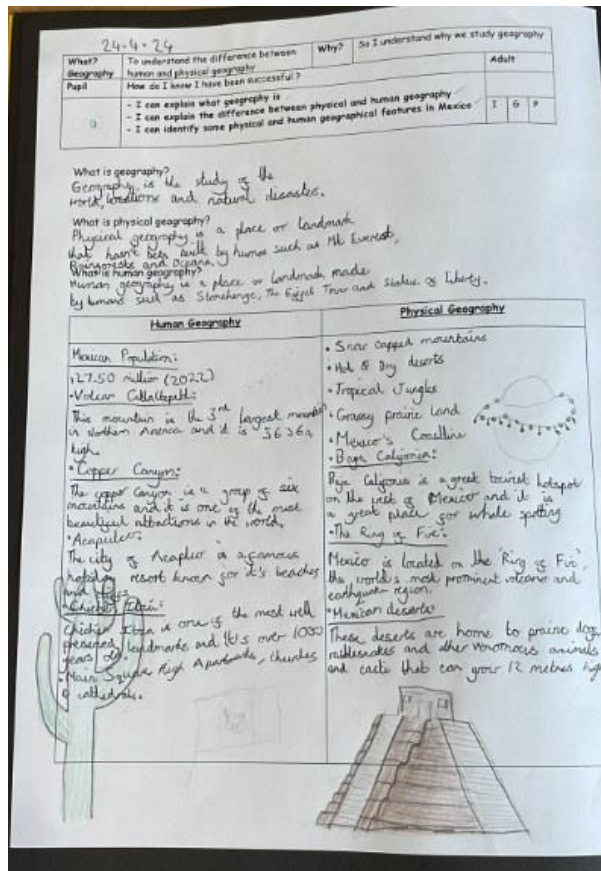 24.4.24
What?
Geography
To understand the difference between
human and physical geography
Why?
So I understand why we study geography
Pupil
How do I know I have been successful?
Adult
- I can explain what geography is
- I can explain the difference between physical and human geography
- I can identify some physical and human geographical features in Mexico
I G P
What is geography?
Geography is the study of the
world, locations and natural disaster.
What is physical geography?
Physical geography is a place or landmark
that hasn't been built by humans such as Mt Everest,
Rainforests and Oceans.
What is human geography?
Human geography is a place or landmark made
by humans such as Stonehenge, The Eiffel Tower and Statue of Liberty.
Human Geography
Mexican Population:
127.50 million (2022)
• Volcan
This mountain is the 3rd largest mountain
in Northern America and it is
high.
• Copper Canyon:
The copper Canyon is a group of six
mountains and it is one of the most
beautiful attractions in the world.
• Acapulco:
The city of Acapulco is a famous
holiday resort known for it's beaches
and
• Chichen Itza:
Chichen Itza is one of the most well
preserved landmarks and it's over 1000
years old.
• Main Square High Apartments, Churches
cathedrals.
Physical Geography
• Snow capped mountains
• Hot & Dry deserts
• Tropical Jungles
• Grassy prairie land
• Mexico's Coastline
• Baja California:
Baja California is a great tourist hotspot
on the west of Mexico and it is
a great place for whale spotting
• The Ring of Fire:
Mexico is located on the 'Ring of Fire',
the world's most prominent volcano and
earthquake region.
• Mexican deserts
These deserts are home to prairie dog,
rattlesnakes and other venomous animals
and cacti that can grow 12 metres high